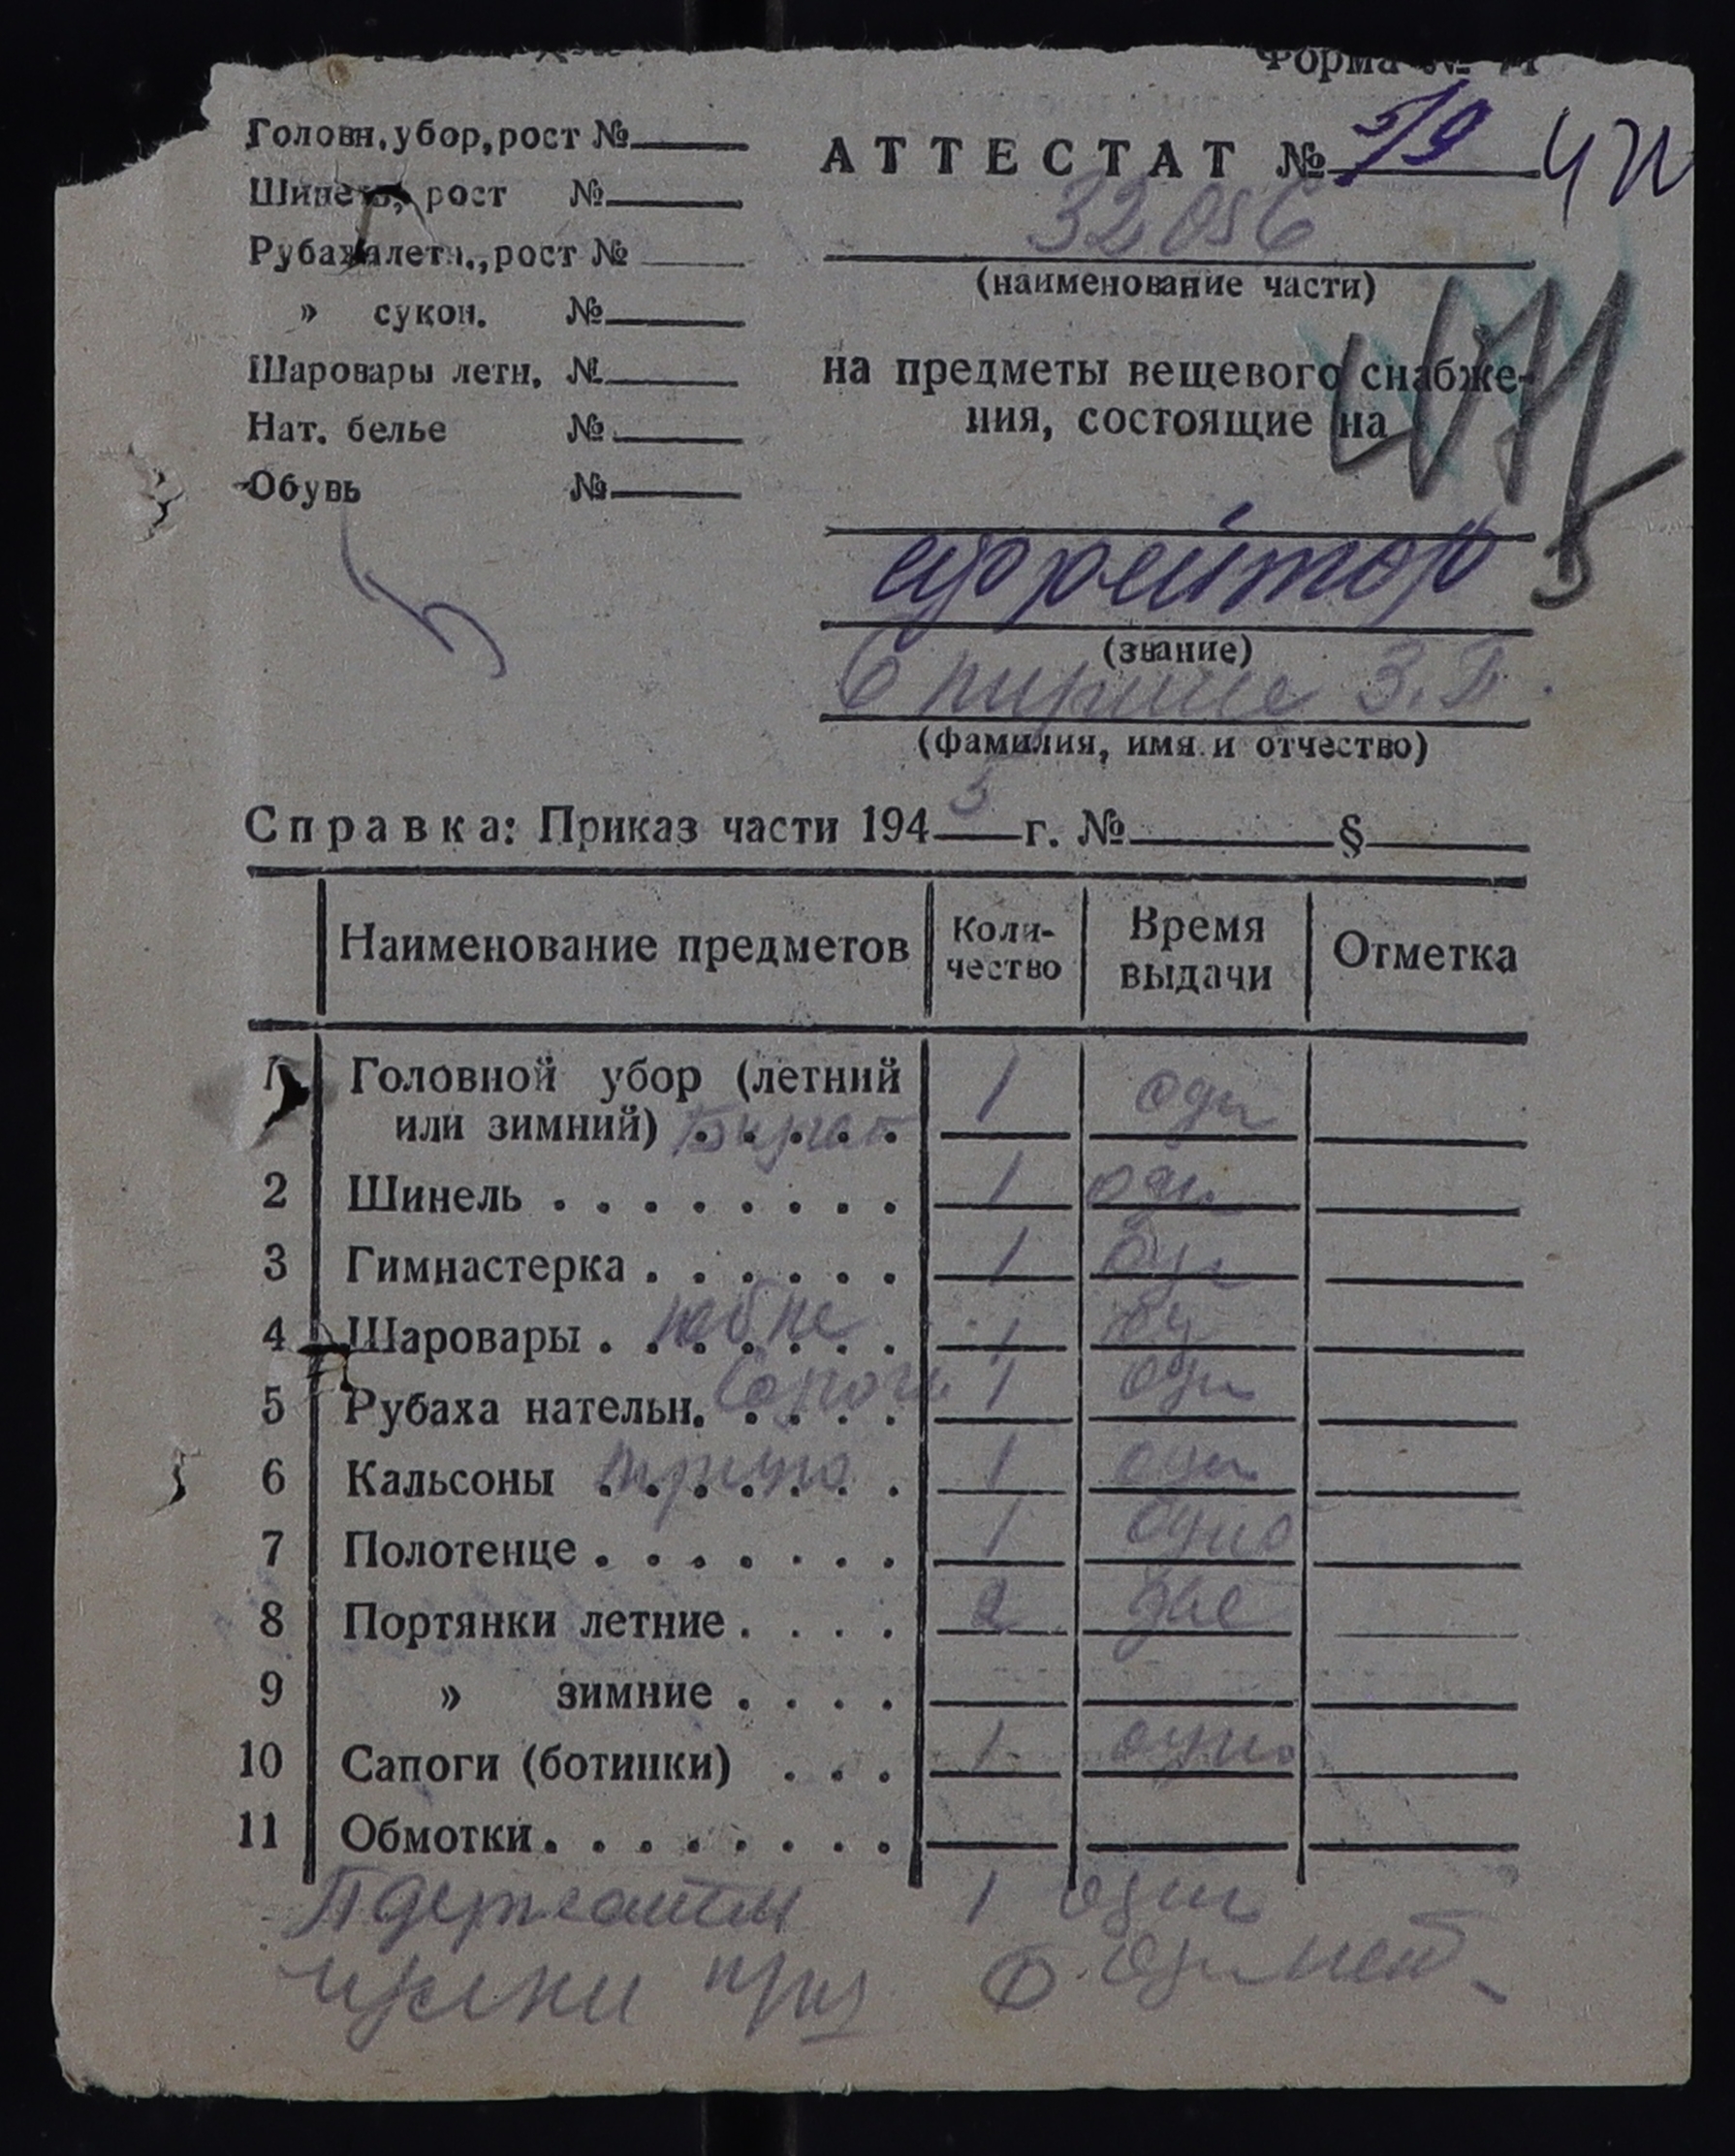 Форма №
Головн. убор, рост №
Шинель, рост №
Рубаха летн., рост №
» сукон. №
Шаровары летн. №
Нат. белье №
Обувь №
АТТЕСТАТ №
32056
(наименование части)
на предметы вещевого снабже-
ния, состоящие на
ефрейтор
(звание)
З. Г.
(фамилия, имя и отчество)
Справка: Приказ части 1945 г. № §
Наименование предметов Коли-чество Время выдачи Отметка
1 Головной убор (летний
или зимний) Берет 1 один
2 Шинель 1 один
3 Гимнастерка 1 один
4 Шаровары юбке 1
5 Рубаха нательн. 1 один
6 Кальсоны трико 1 один
7 Полотенце 1 одно
8 Портянки летние 2 две
9 » зимние
10 Сапоги (ботинки) 1 одно
11 Обмотки
1 один